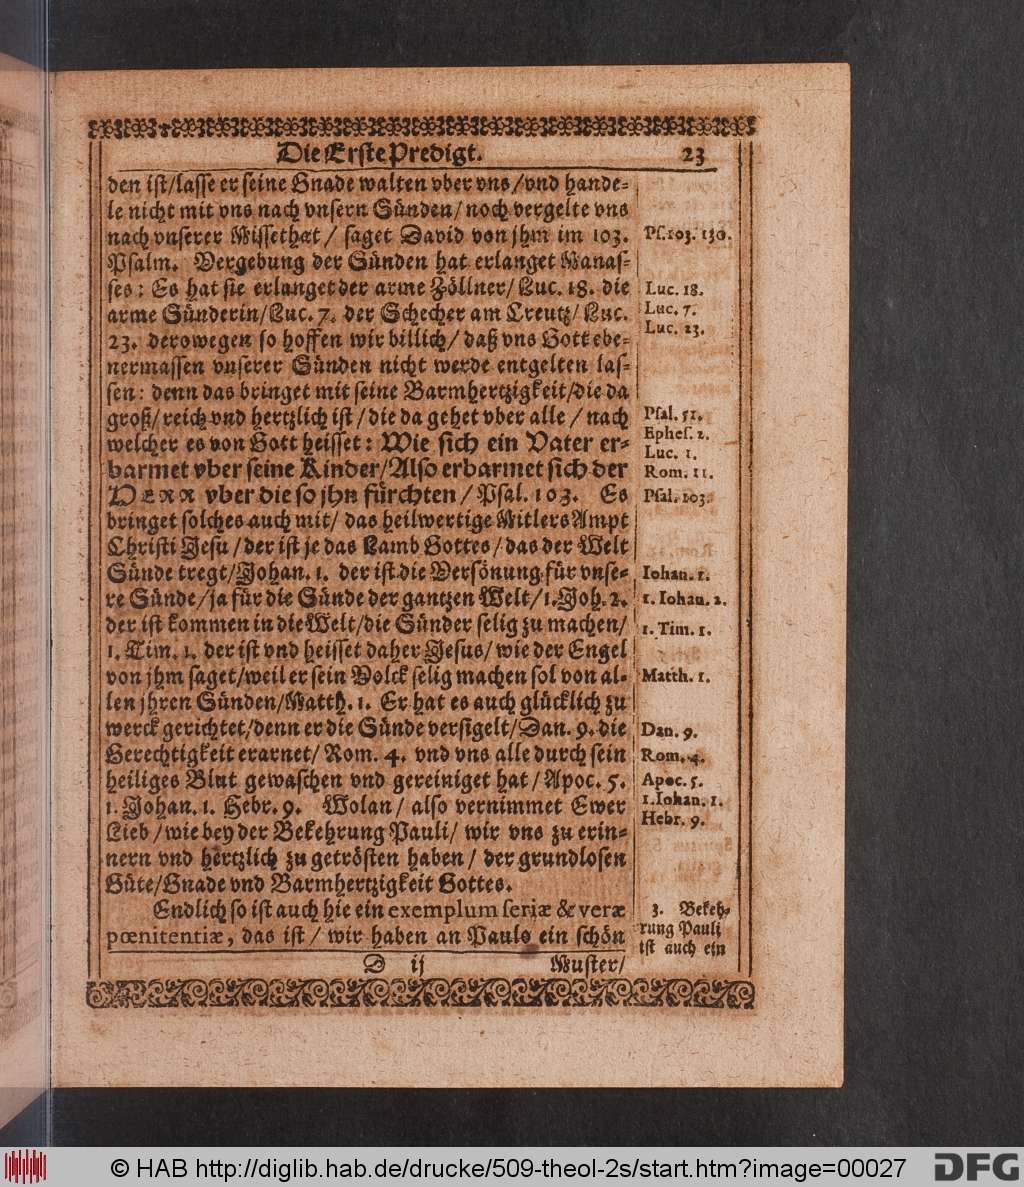 Die Erste Predigt. 23
den ist/lasse er seine Gnade walten vber vns/vnd hande-
le nicht mit vns nach vnsern Sünden/noch vergelte vns
nach vnserer Missethat/ saget David von jhm im 103.
Psalm. Vergebung der Sünden hat erlanget Manas-
ses: Es hat sie erlanget der arme Zöllner/Luc. 18. die
arme Sünderin/Luc. 7. der Schecher am Creutz/ Luc.
23. derowegen so hoffen wir billich/daß vns Gott ebe-
nermassen vnserer Sünden nicht werde entgelten las-
sen: denn das bringet mit seine Barmhertzigkeit/die da
groß/reich vnd hertzlich ist/die da gehet vber alle/nach
welcher es von Gott heisset: Wie sich ein Vater er-
barmet vber seine Kinder/Also erbarmet sich der
HERR vber die so jhn fürchten/Psal. 103. Es
bringet solches auch mit/ das heilwertige Mitlers Ampt
Christi Jesu/der ist je das Lamb Gottes/das der Welt
Sünde tregt/Johan. 1. der ist die Versönung für vnse-
re Sünde/ja für die Sünde der gantzen Welt/1.Joh. 2.
der ist kommen in die Welt/die Sünder selig zu machen/
1. Tim. 1. der ist vnd heisset daher Jesus/wie der Engel
von jhm saget/weil er sein Volck selig machen sol von al-
len jhren Sünden/Matth. 1. Er hat es auch glücklich zu
werck gerichtet/denn er die Sünde versigelt/Dan. 9. die
Gerechtigkeit erarnet/ Rom. 4. vnd vns alle durch sein
heiliges Blut gewaschen vnd gereiniget hat/Apoc. 5.
1. Johan. 1. Hebr. 9. Wolan/ also vernimmet Ewer
Lieb/wie bey der Bekehrung Pauli/ wir vns zu erin-
nern vnd hertzlich zu getrösten haben/ der grundlosen
Güte/Gnade vnd Barmhertzigkeit Gottes.
Endlich so ist auch hie ein exemplum seriæ & veræ
pœnitentiæ, das ist/ wir haben an Paulo ein schön
D ij Muster/
Ps. 103. 130.
Luc. 18.
Luc. 7.
Luc. 23.
Psal. 51.
Ephes. 2.
Luc. 1.
Rom. 11.
Psal. 103.
Iohan. 1.
1. Iohan. 2.
1. Tim. 1.
Matth. 1.
Dan. 9.
Rom. 4.
Apoc. 5.
1. Iohan. 1.
Hebr. 9.
3. Bekeh-
rung Pauli
ist auch ein
© HAB http://diglib.hab.de/drucke/509-theol-2s/start.htm?image=00027
DFG